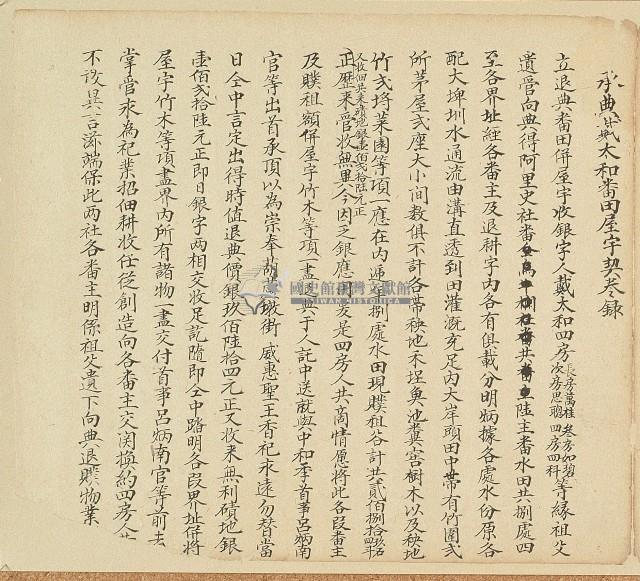 承典戴太和番田屋字契卷錄
立退典番田併屋宇收銀字人戴太和四房長房萬桂 叁房如碧 次房思聰 四房四科等緣祖父
遺管向典得阿里史社番共番陸主番水田共捌處四
至各界址經各番主及退耕字內各有俱載分明炳據各處水份原各
配大埤圳水通流由溝直透到田灌溉充足內大岸頭田中帶有竹圍弍
所茅屋弍座大小間数俱不計各帶秧地禾埕魚池糞窖樹木以及秧地
竹弍埒菜園等項一應在內逓年捌處水田現贌租谷計共貳佰捌拾
正歷來管收無異今因乏銀應用爰是四房人共商情愿將此各段番主
又收回共來磧地銀壹佰弍拾陸元正
及贌租額併屋宇竹木等項一盡退與于人託中送就與中和季首事呂炳南
官等出首承頂以為崇奉葫蘆墩街 威惠聖王香祀永遠勿替當
日仝中言定出得時值退典價銀玖佰陸拾四元正又收來無利磧地銀
壹佰弍拾陸元正即日銀字兩相交收足訖隨即仝中踏明各段界址併將
屋宇竹木等項盡界內所有諸物一盡交付首事呂炳南官等前去
掌管永為祀業招佃耕收任從創造向各番主交関換約四房人
不敢異言滋端保此兩社各番主明係祖父遺下向典退贌物業
國史館臺灣文獻館
TAIWAN HISTORICA